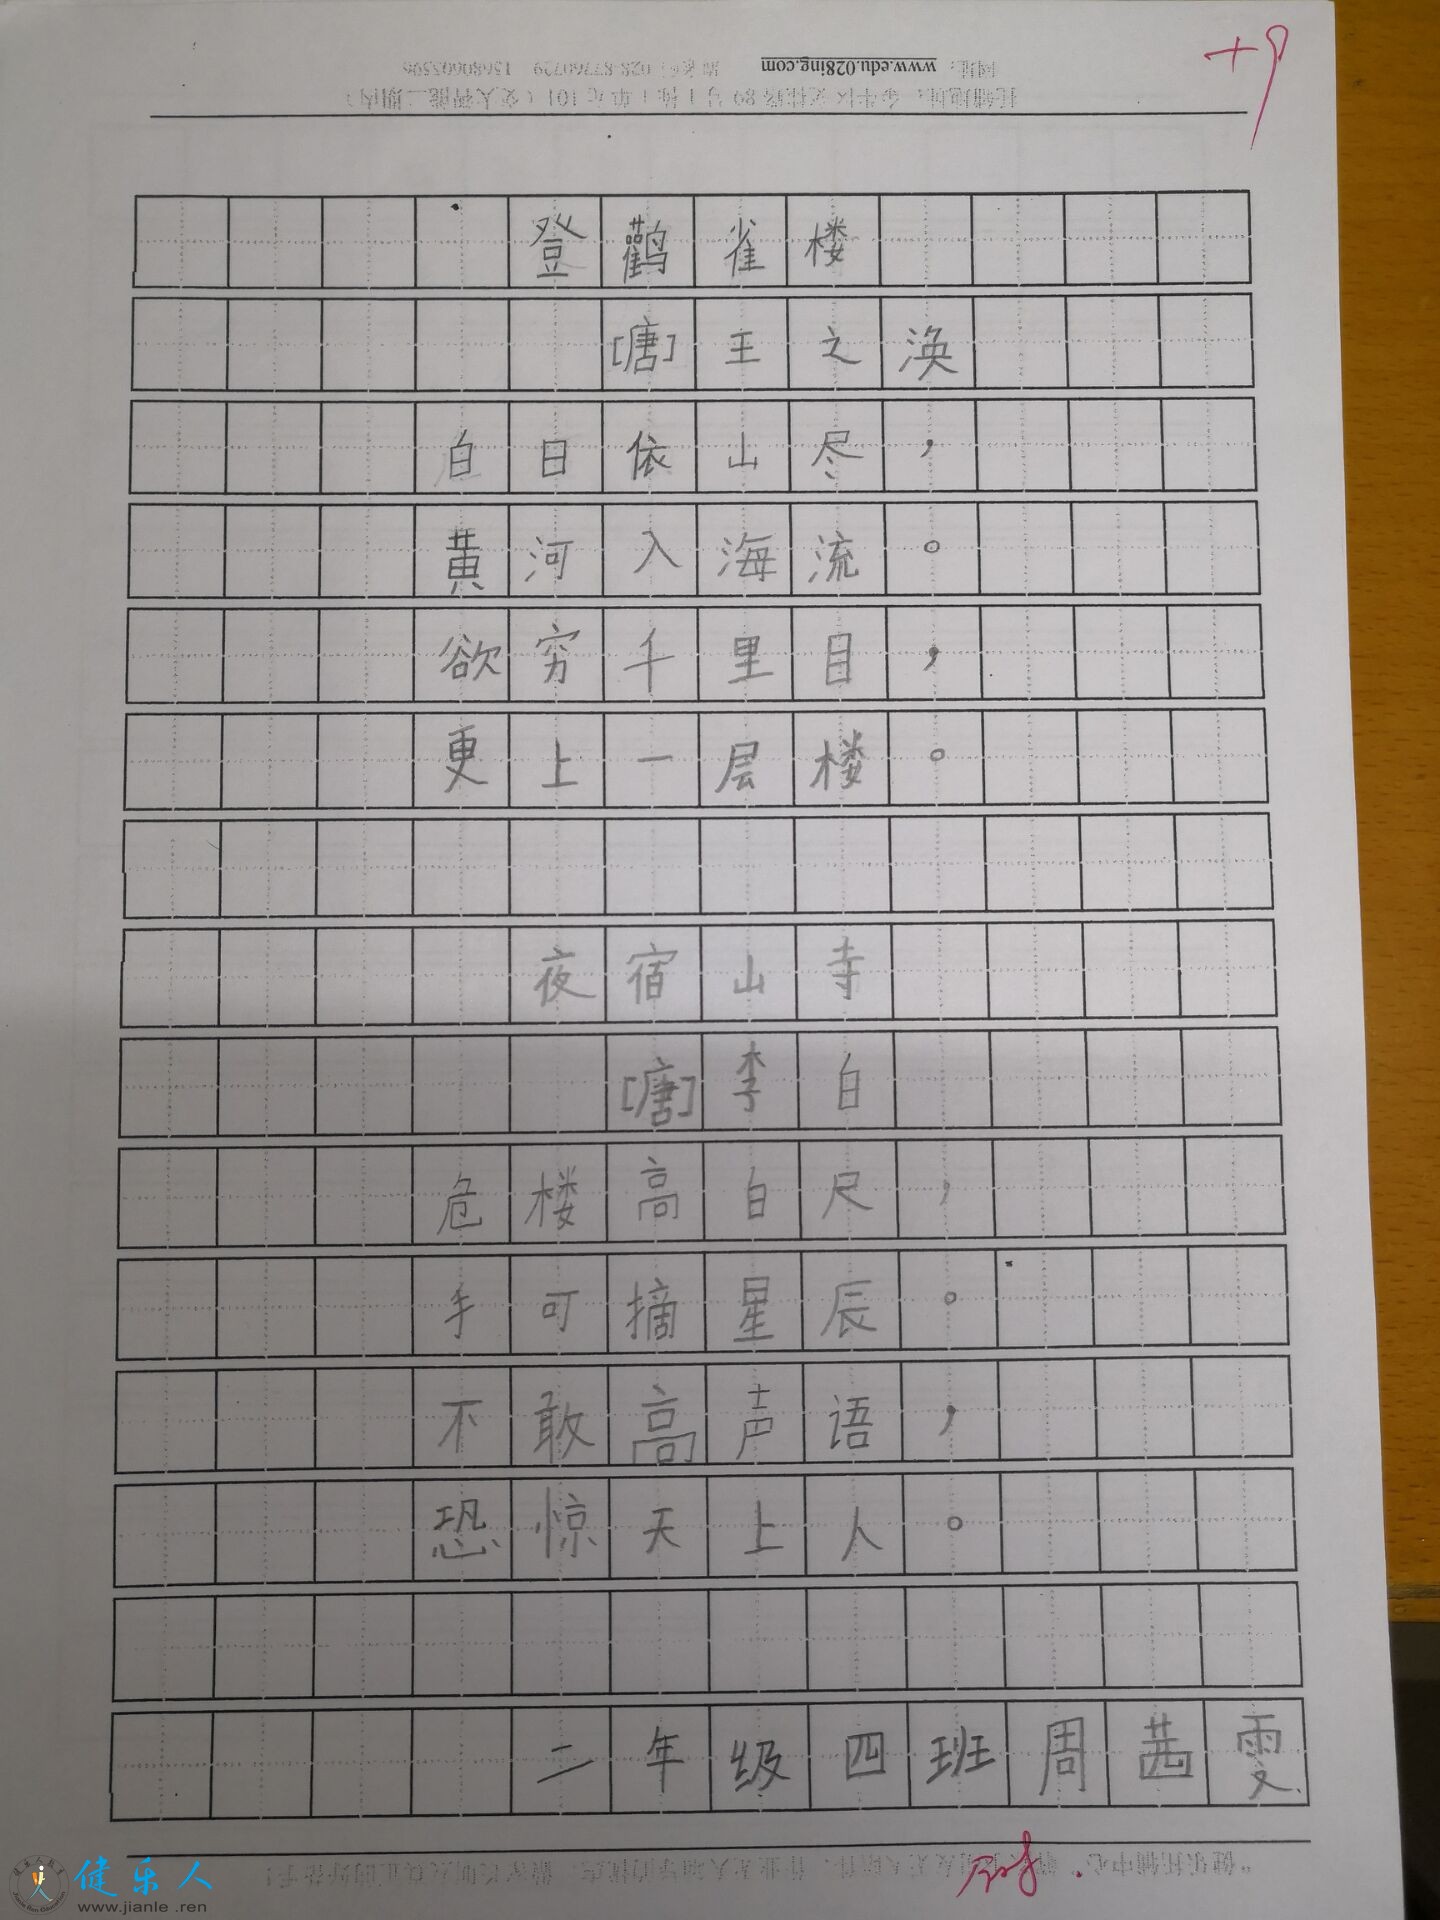 +9
www.edu.028ing.com
登鹳雀楼
[唐]王之涣
白日依山尽，
黄河入海流。
欲穷千里目，
更上一层楼。
夜宿山寺
[唐]李白
危楼高白尺，
手可摘星辰。
不敢高声语，
恐惊天上人。
二年级四班周茜雯
健乐人
www.jianle.ren